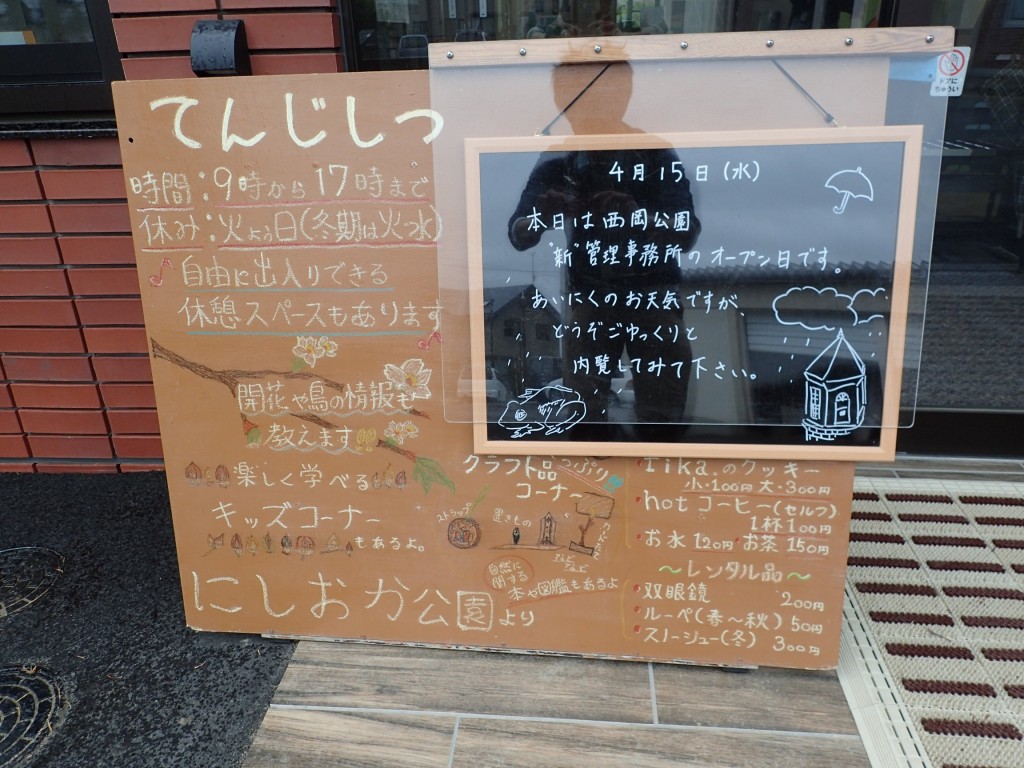 てんじしつ
時間:9時から17時まで
休み:火よう日(冬期は火・水)
自由に出入りできる
休憩スペースもあります
開花や鳥の情報も
教えます!!
楽しく学べる
キッズコーナー
もあるよ。
にしおか公園より
ドアに
ちゅうい
4月15日(水)
本日は西岡公園
"新"管理事務所のオープン日です。
あいにくのお天気ですが、
どうぞごゆっくりと
内覧してみて下さい。
クラフト品
コーナー
ストラップ
置きもの
自然に
関する
本や図鑑もあるよ
rika.のクッキー
小・100円 大・300円
hotコーヒー(セルフ)
1杯100円
お水120円・お茶150円
〜レンタル品〜
双眼鏡 200円
ルーペ(春〜秋)50円
スノーシュー(冬)300円